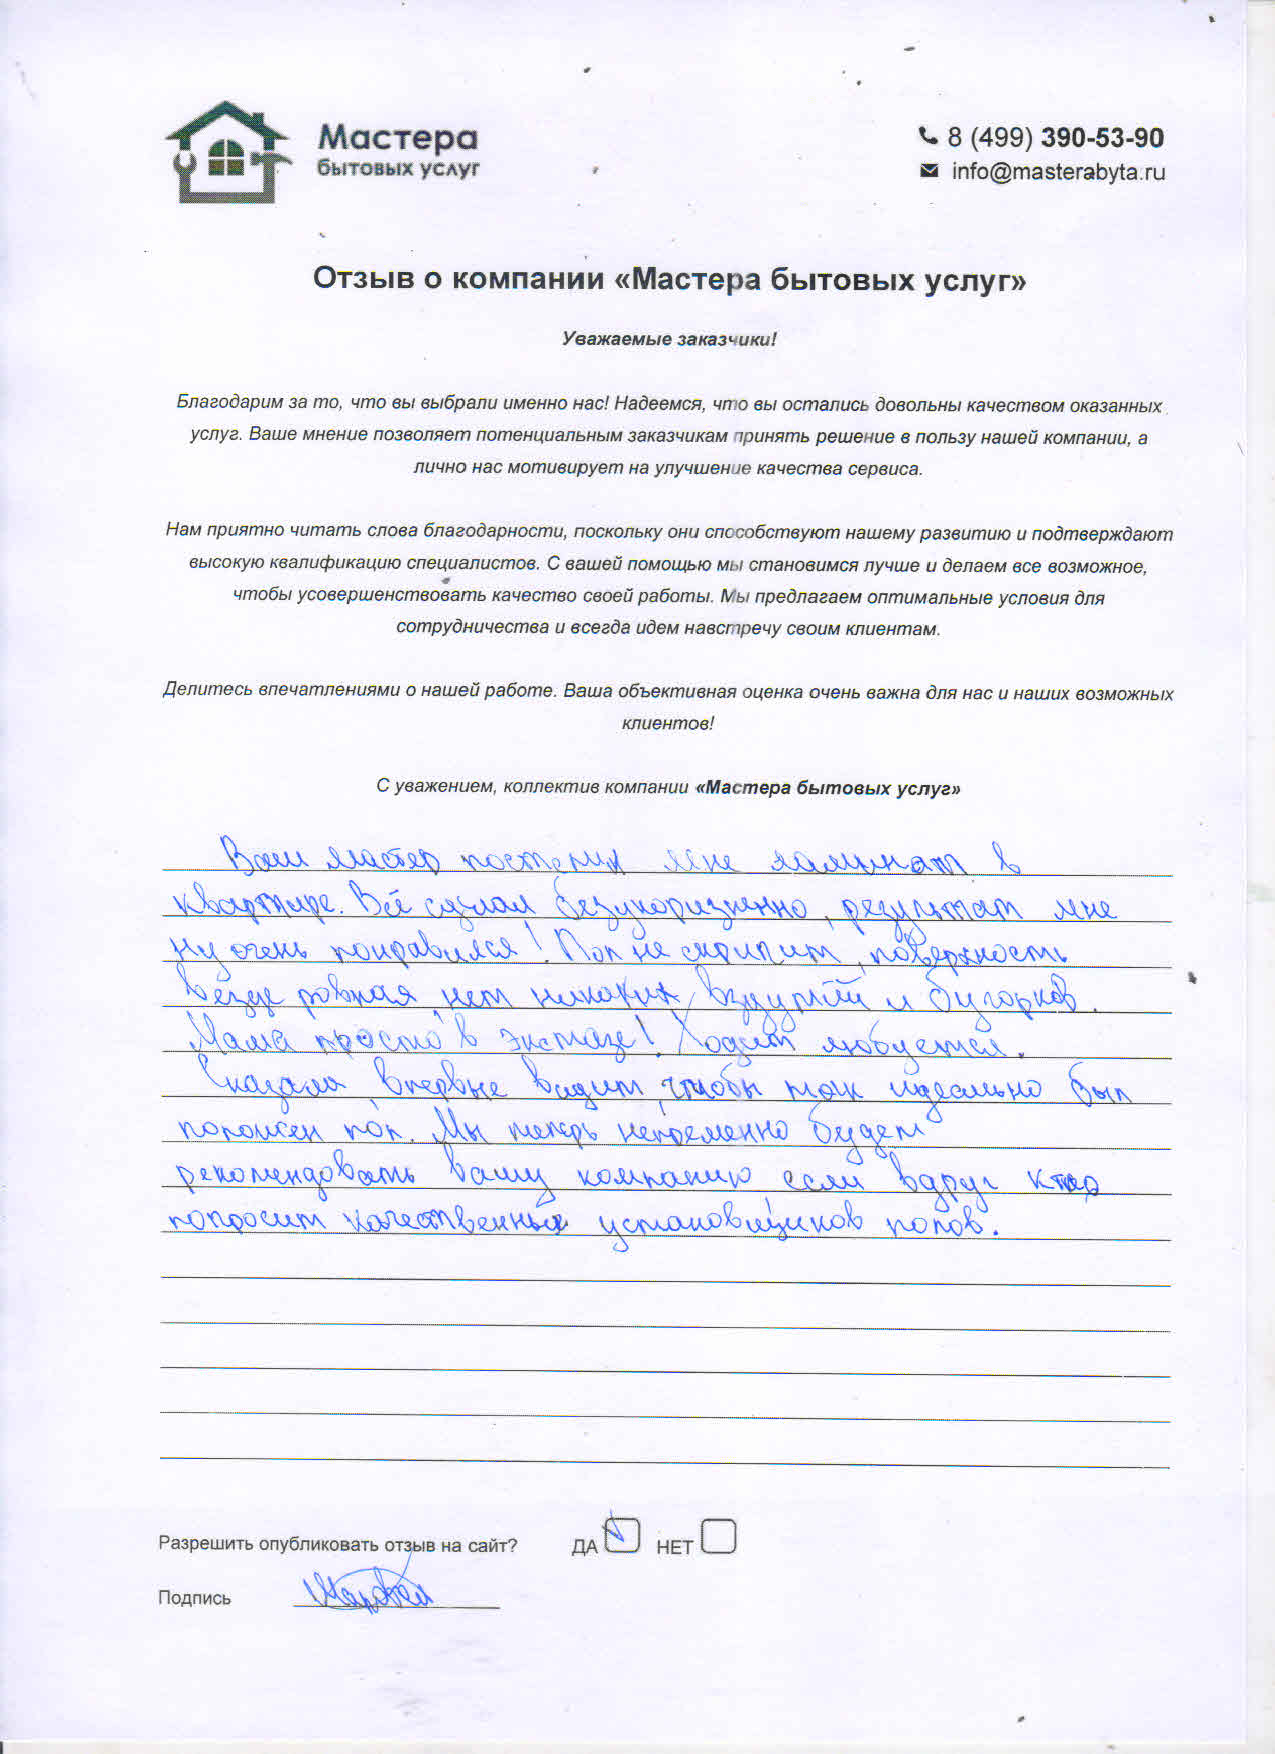 Мастера
бытовых услуг
8 (499) 390-53-90
info@masterabyta.ru
Отзыв о компании «Мастера бытовых услуг»
Уважаемые заказчики!
Благодарим за то, что вы выбрали именно нас! Надеемся, что вы остались довольны качеством оказанных
услуг. Ваше мнение позволяет потенциальным заказчикам принять решение в пользу нашей компании, а
лично нас мотивирует на улучшение качества сервиса.
Нам приятно читать слова благодарности, поскольку они способствуют нашему развитию и подтверждают
высокую квалификацию специалистов. С вашей помощью мы становимся лучше и делаем все возможное,
чтобы усовершенствовать качество своей работы. Мы предлагаем оптимальные условия для
сотрудничества и всегда идем навстречу своим клиентам.
Делитесь впечатлениями о нашей работе. Ваша объективная оценка очень важна для нас и наших возможных
клиентов!
С уважением, коллектив компании «Мастера бытовых услуг»
Ваш мастер постелил мне ламинат в
квартире. Всё сделал безукоризненно, результат мне
ну очень понравился! Пол не скрипит, поверхность
везде ровная, нет никаких вздутий и бугорков.
Мама просто в экстазе! Ходит любуется.
Сказала, впервые видит, чтобы так идеально был
положен пол. Мы теперь непременно будем
рекомендовать вашу компанию если вдруг кто
попросит качественных установщиков полов.
Разрешить опубликовать отзыв на сайт? ДА НЕТ
Подпись